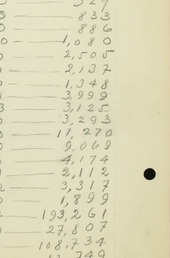 329
833
886
1,080
2,505
2,137
1,348
3,999
3,125
3,293
11,270
9,069
4,174
2,112
3,317
1,899
193,261
27,807
108,734
749